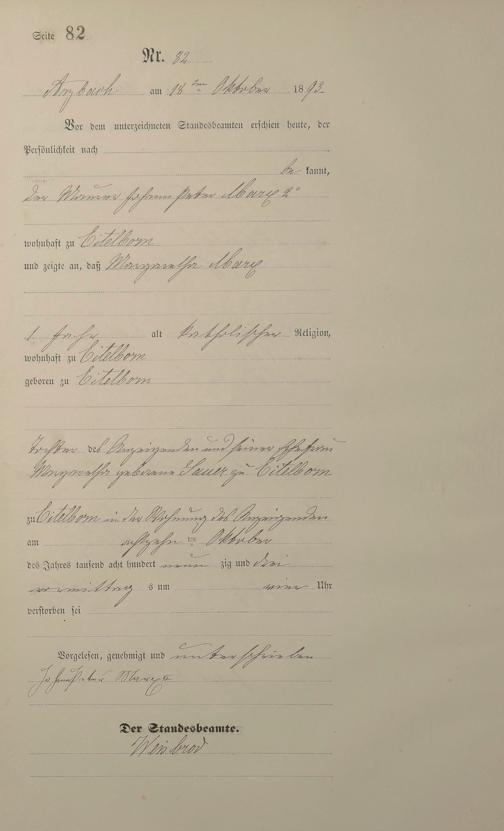 Seite 82
Nr. 82
Arzbach am 18ten Oktober 1893
Vor dem unterzeichneten Standesbeamten erschien heute, der
Persönlichkeit nach
be kannt,
der Maurer Johann Peter Marx 2r
wohnhaft zu Eitelborn
und zeigte an, daß Margaretha Marx
1 Jahr alt katholischer Religion,
wohnhaft zu Eitelborn
geboren zu Eitelborn
Tochter des Anzeigenden und seiner Ehefrau
Margaretha geborene Sauer zu Eitelborn
zu Eitelborn in der Wohnung des Anzeigenden
am achtzehnten Oktober
des Jahres tausend acht hundert neun zig und drei
vormittag s um vier Uhr
verstorben sei
Vorgelesen, genehmigt und unterschrieben
Johann Peter Marx
Der Standesbeamte.